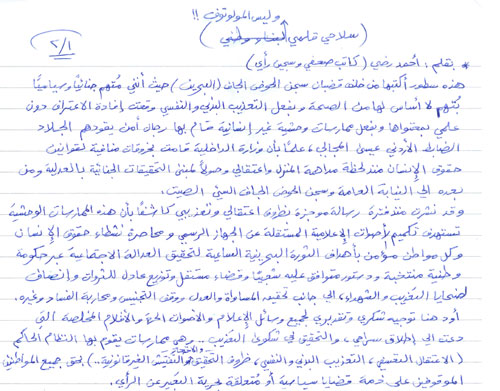 وليس المولوتوف !!
(سلاحي قلمي)
٢/١
* بقلم : أحمد رضي (كاتب صحفي وسجين رأي)
هذه سطور أكتبها من خلف قضبان سجن الحوض الجاف (البحرين) حيث أنني متهم جنائياً وسياسياً
بتهم لا أساس لها من الصحة وبفعل التعذيب البدني والنفسي وقعت إفادة الاعتراف دون
علمي بمحتواها وبفعل ممارسات وحشية غير إنسانية قام بها رجال أمن يقودهم الجلاد
الضابط الأردني عيسى المجالي، علماً بأن وزارة الداخلية قامت بخروقات منافية لقوانين
حقوق الإنسان منذ لحظة مداهمة المنزل واعتقالي وصولاً لمبنى التحقيقات الجنائية بالعدلية ومن
بعده إلى النيابة العامة وسجن الحوض الجاف السيئ الصيت.
وقد نشرت منذ فترة رسالة موجزة بظروف اعتقالي وتعذيبي كاشفاً بأن هذه الممارسات الوحشية
تستهدف تكميم الأصوات الإعلامية المستقلة عن الجهاز الرسمي ومحاصرة نشطاء حقوق الإنسان
وكل مواطن مؤمن بأهداف الثورة البحرينية الساعية لتحقيق العدالة الاجتماعية عبر حكومة
وطنية منتخبة ودستور متوافق عليه شعبياً وقضاء مستقل وتوزيع عادل للثروات وإنصاف
لضحايا التعذيب والشهداء، إلى جانب تحقيق المساواة والعدل ووقف التجنيس ومحاربة الفساد وغيره.
أود هنا توجيه شكري وتقديري لجميع وسائل الإعلام والأصوات الحرة والأقلام المخلصة التي
دعت إلى إطلاق سراحي، والتحقيق في شكوى التعذيب .. وهي ممارسات يقوم بها النظام الحاكم
(الاعتقال التعسفي، التعذيب البدني والنفسي، ظروف التحقيق والتفتيش الغير قانونية ..) بحق جميع المواطنين
الموقوفين على ذمة قضايا سياسية أو متعلقة بحرية التعبير عن الرأي.